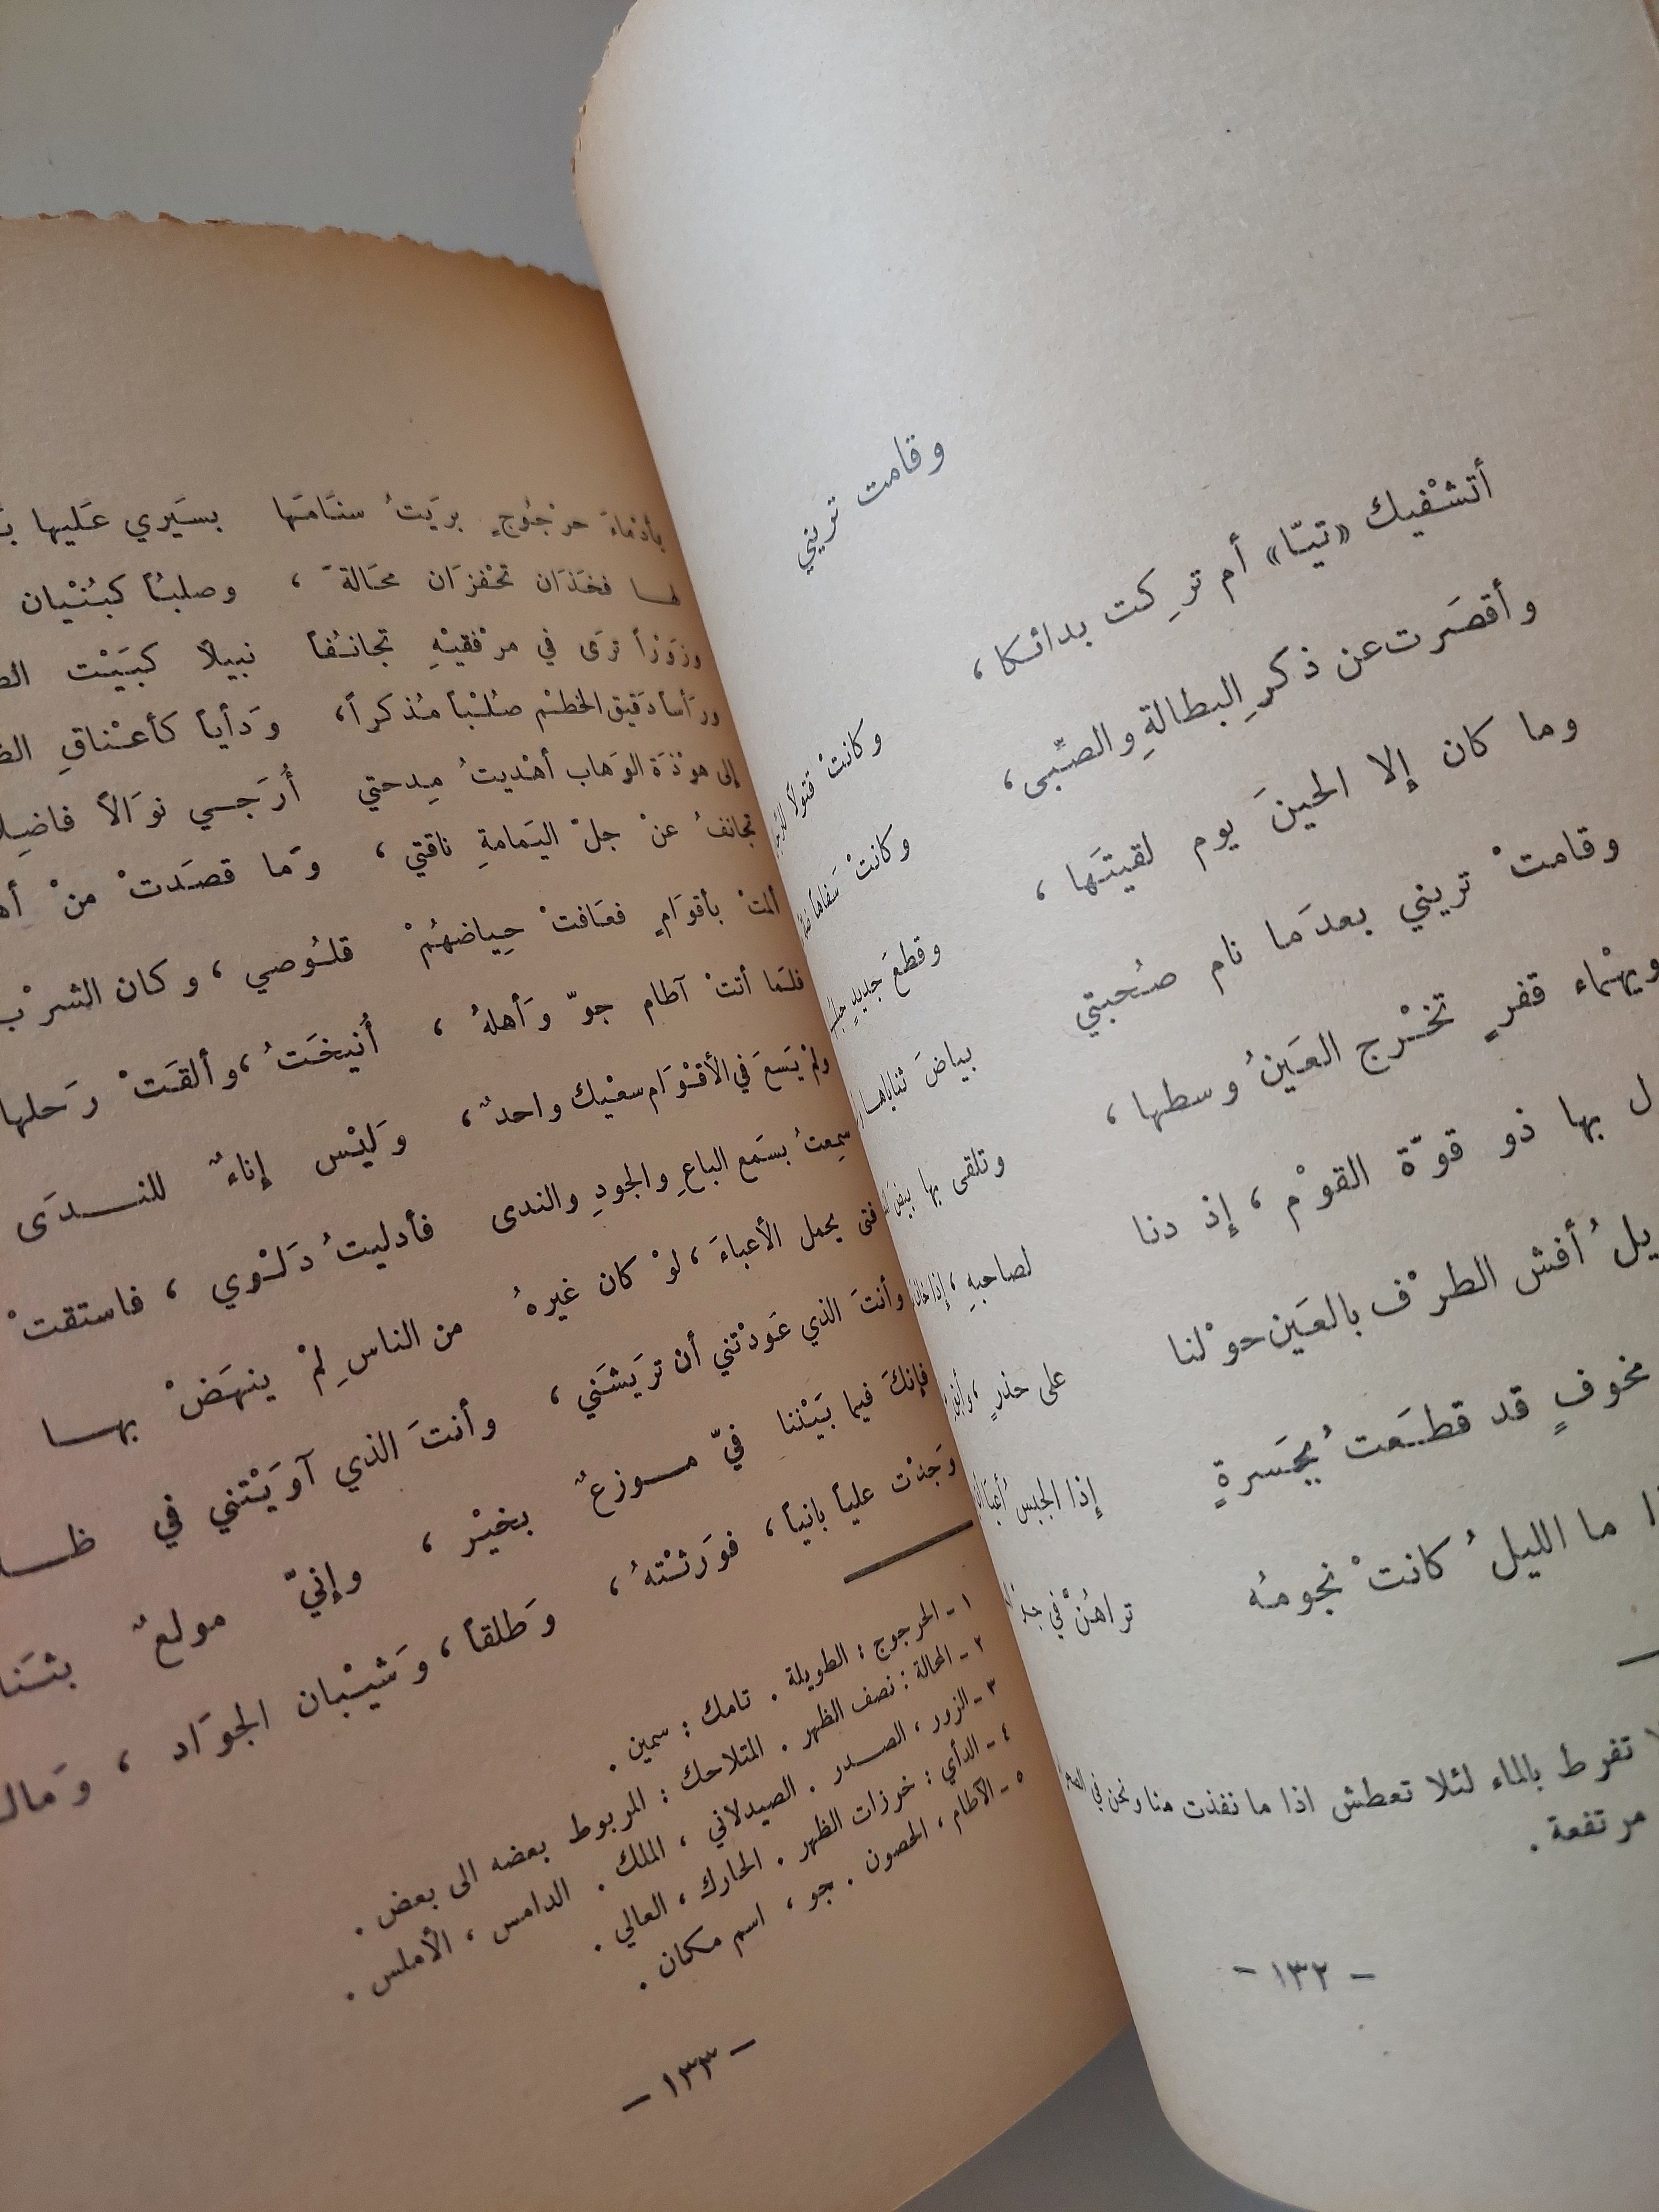 وقامت تريني
أتشْفيك «تيّا» أم ترِكت بدائكا، وكانتْ قتولاً
وأقصَرت عن ذكرِ البطالةِ والصِّبى، وكانتْ سَفاهاً
وما كان إلا الحينَ يوم لقيتَها، وقطعَ جديدٍ
وقامتْ تريني بعدَما نام صُحبتي بياضَ ثناياها
ويهْماء قفرٍ تخْرج العَينُ وسطها، وتلقى بها بيضَ
بها ذو قوّة القوْم، إذ دنا لصاحبهِ، إذا
أفش الطرْف بالعَين حوْلنا على حذرٍ،
مخوفٍ قد قطَعتُ بجَسرةٍ إذا الجبسُ
ما الليلُ كانتْ نجومُه تراهُنّ في
تفرط بالماء لئلا تعطش اذا ما نفذت منا ونحن في
مرتفعة.
- ١٣٢ -
بأدْماءَ حرْجُوجٍ برَيتُ سنَامَها بسَيري عَليها
لها فخَذَان تحْفزَان محَالةً، وصلبُاً كبُنْيان
وزَوْراً ترَى في مرْفقيْهِ تجانُفاً نبيلا كبَيْت
ورَأساً دَقيق الخطْم صُلْباً مُذكراً، وَدأياً كأعْناقِ
إلى هوْذَة الوَهاب أهْديتُ مِدحتي أُرَجي نوَالاً فاضِلا
تجانفُ عنْ جلْ اليَمامةِ ناقتي، وَما قصَدتْ منْ
ألمتْ بأقوَامٍ فعَافتْ حِياضهُمْ قلُوصي، وكان الشرْب
فلَما أتتْ آطام جوّ وَأهلهُ، أُنيخَتْ، وألقَتْ رَحلها
ولمْ يَسعَ في الأقْوَام سعْيك واحدٌ، وَليْس إناءٌ للندَى
سمِعتُ بسَمع الباعِ والجودِ والندى فأدليتُ دَلْوي، فاستقتْ
فتى يحمل الأعباءَ، لوْ كان غيرهُ من الناسِ لمْ ينهَضْ بها
وأنتَ الذي عَودْتني أن ترَيشَني، وأنتَ الذي آوَيْتني في
فإنكَ فيما بَيْننا فيّ موزعٌ بخيْر، وإنيّ مولعٌ
وَجدْت علياً بانياً، فوَرثْتهُ، وَطلقاً، وَشيْبان الجوَاد،
١ - الحرجوج : الطويلة . تامك : سمين .
٢ - المحالة : نصف الظهر . المتلاحك : المربوط بعضه الى بعض .
٣ - الزور ، الصدر . الصيدلاني ، الملك . الدامس ، الأملس .
٤ - الدأي : خرزات الظهر . الحارك ، العالي .
٥ - الآطام ، الحصون . جو ، اسم مكان .
- ١٣٣ -